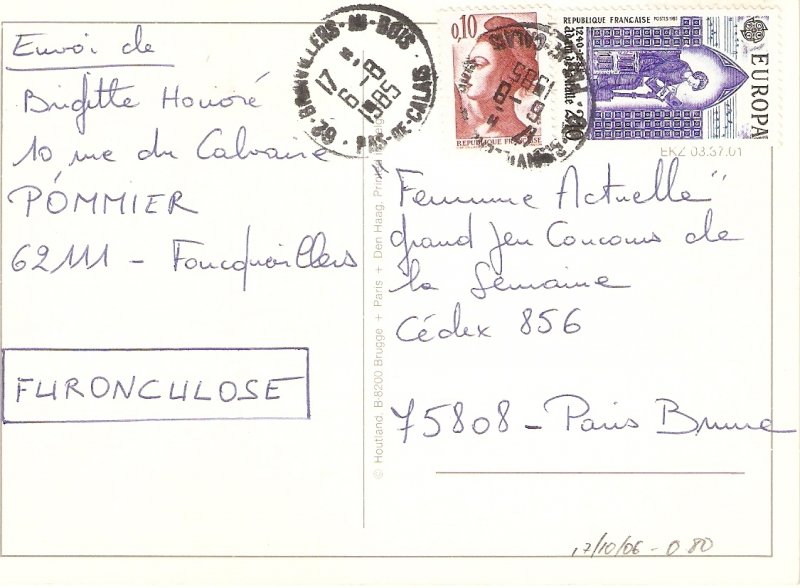 Envoi de
Brigitte Honoré
10 rue du Calvaire
POMMIER
62111 - Foncquevillers
FURONCULOSE
BOIS
17 H
6 -8
1985
62 · PAS-DE-CALAIS
0,10
REPUBLIQUE FRANÇAISE
REPUBLIQUE FRANÇAISE POSTES 1985
EUROPA
EKZ 03.37.01
"Femme Actuelle"
grand Jeu Concours de
la Semaine
Cédex 856
75808 - Paris Brune
© Houtland, B-8200 Brugge + Paris + Den Haag,
17/10/06 - 0 80